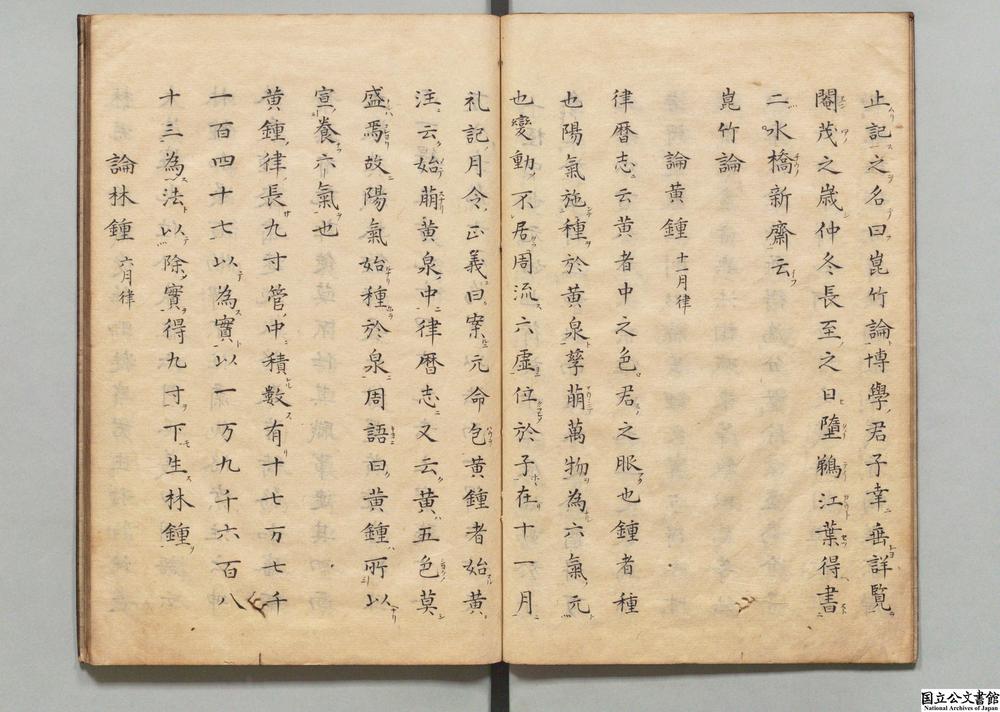 止記之名曰崑竹論博學君子幸垂詳覧
閹茂之歳仲冬長至之日墮鵜江葉得書
二水橋新齋云
崑竹論
論黄鍾 十一月律
律暦志云黄者中之色君之服也鍾者種
也陽氣施種於黄泉孳萠萬物為六氣元
也變動不居周流六虚位於子在十一月
礼記月令正義曰案元命包黄鍾者始黄
注云始萠黄泉中律暦志又云黄五色莫
盛焉故陽氣始種於泉周語曰黄鍾所以
宣養六氣也
黄鍾律長九寸管中積數有十七万七千
一百四十七以為實以一万九千六百八
十三為法以除實得九寸下生林鍾
論林鍾 六月律
国立公文書館
National Archives of Japan